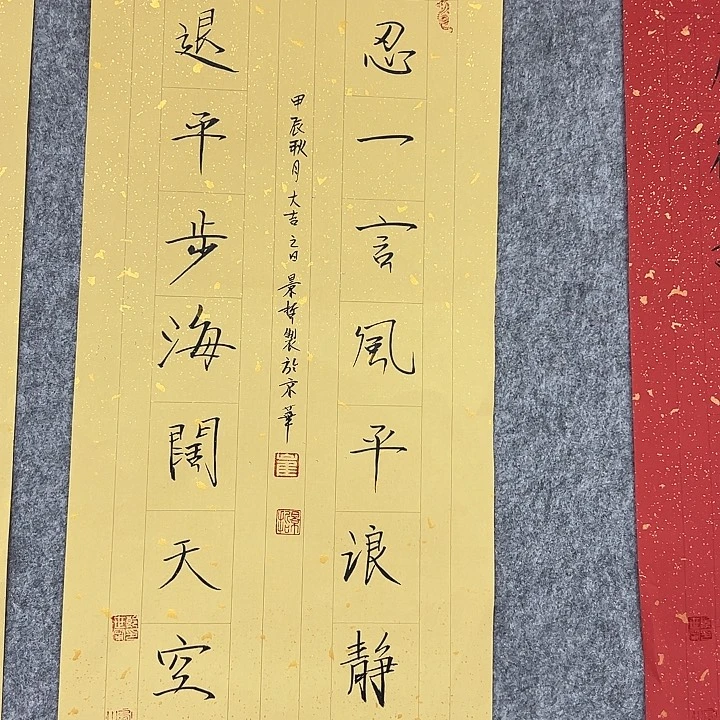 忍一言風平浪静
退平步海闊天空
甲辰秋月大吉之日景哲製於京華